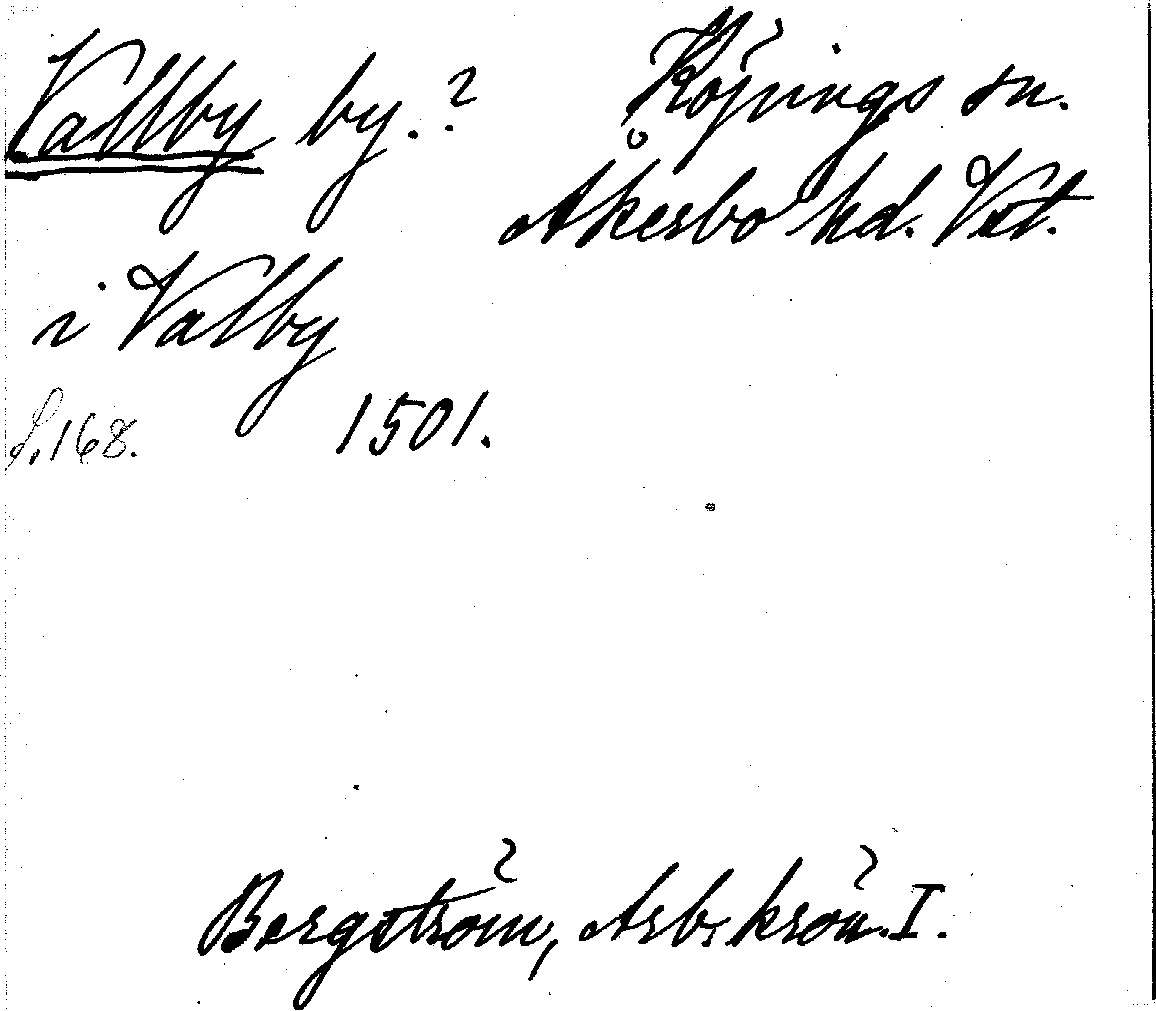 Vallby by.?
Köpings sn.
Åkerbo hd. Vst.
i Valby
S. 168.
1501.
Bergström, Arb. krön. I.